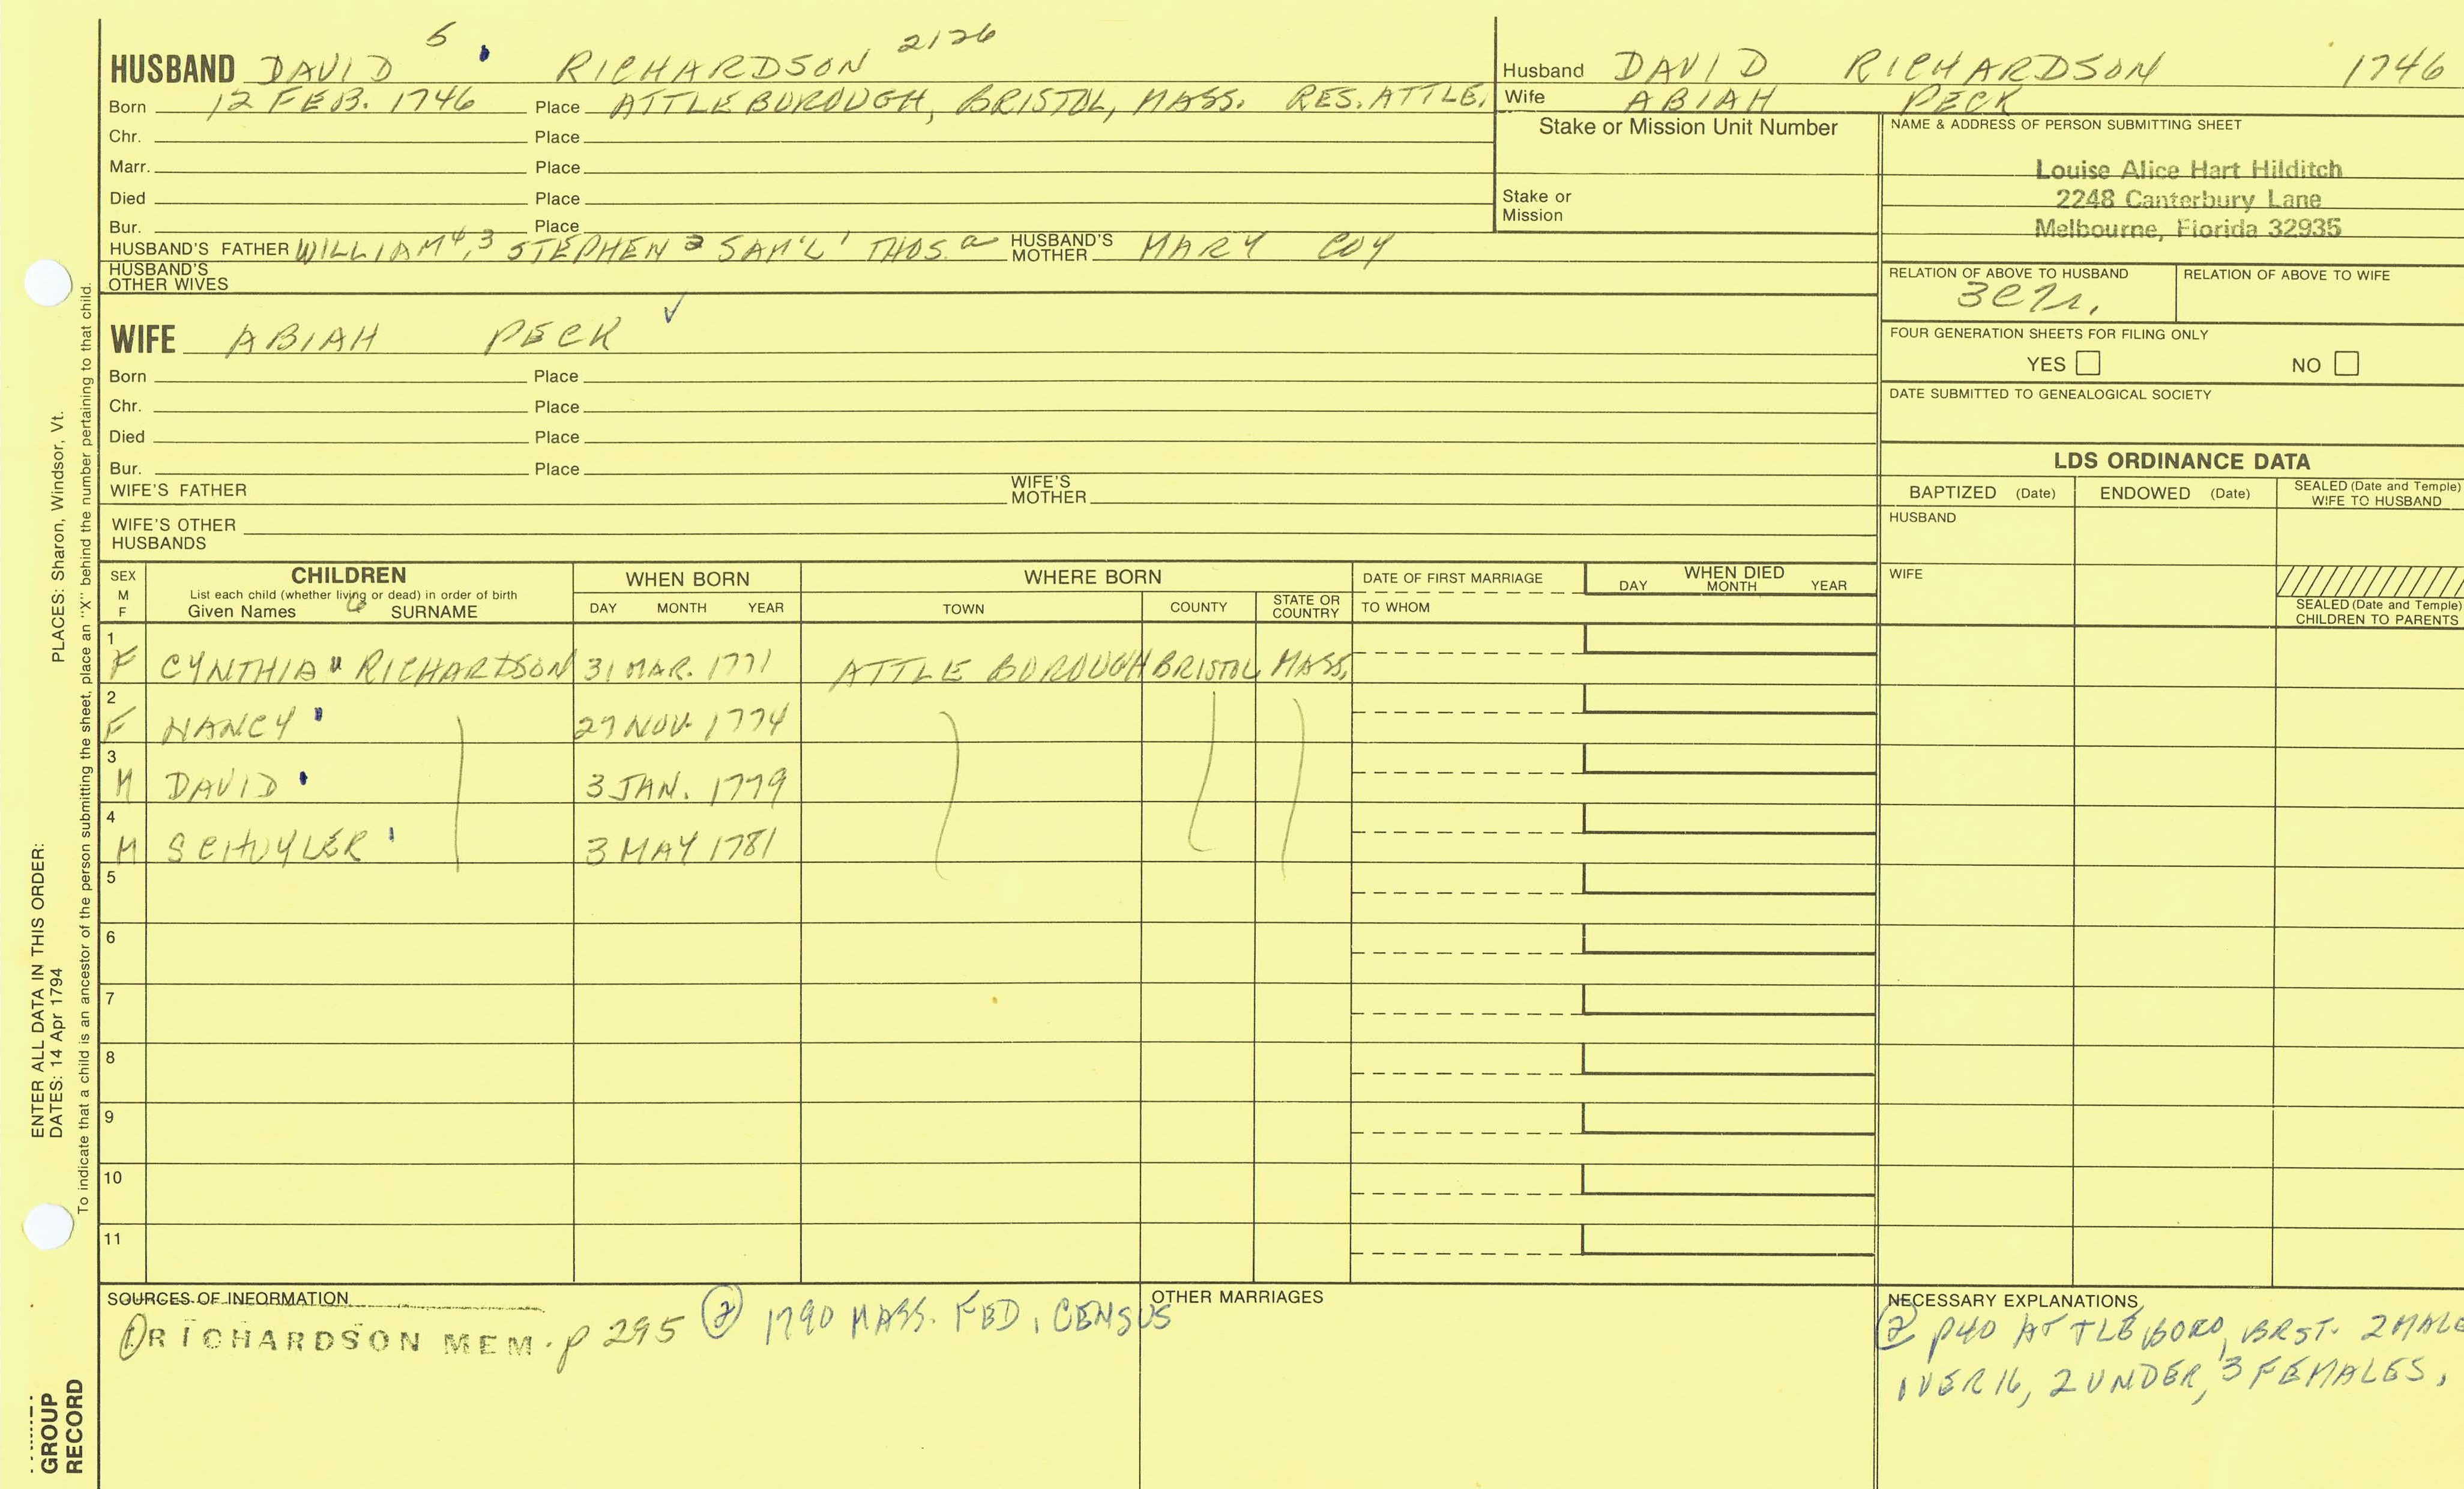 HUSBAND DAVID 5 RICHARDSON 2126
Born 12 FEB. 1746 Place ATTLEBOROUGH, BRISTOL, MASS. RES. ATTLE.
Chr. Place
Marr. Place
Died Place
Bur. Place
HUSBAND'S FATHER WILLIAM 4, 3 STEPHEN 2 SAM'L' THOS. a HUSBAND'S MOTHER MARY COY
HUSBAND'S OTHER WIVES
Husband DAVID RICHARDSON 1746
Wife ABIAH PECK
Stake or Mission Unit Number
Stake or
Mission
NAME & ADDRESS OF PERSON SUBMITTING SHEET
Louise Alice Hart Hilditch
2248 Canterbury Lane
Melbourne, Florida 32935
RELATION OF ABOVE TO HUSBAND RELATION OF ABOVE TO WIFE
FOUR GENERATION SHEETS FOR FILING ONLY
YES NO
DATE SUBMITTED TO GENEALOGICAL SOCIETY
WIFE ABIAH PECK ✓
Born Place
Chr. Place
Died Place
Bur. Place
WIFE'S FATHER WIFE'S MOTHER
WIFE'S OTHER
HUSBANDS
LDS ORDINANCE DATA
BAPTIZED (Date) ENDOWED (Date) SEALED (Date and Temple) WIFE TO HUSBAND
HUSBAND
WIFE
SEALED (Date and Temple)
CHILDREN TO PARENTS
SEX M F CHILDREN WHEN BORN WHERE BORN DATE OF FIRST MARRIAGE WHEN DIED
List each child (whether living or dead) in order of birth
Given Names 6 SURNAME DAY MONTH YEAR TOWN COUNTY STATE OR COUNTRY TO WHOM DAY MONTH YEAR
1 F CYNTHIA RICHARDSON 31 MAR. 1771 ATTLE BOROUGH BRISTOL MASS.
2 F NANCY 27 NOV. 1774
3 M DAVID 3 JAN. 1779
4 M SCHUYLER 3 MAY 1781
5
6
7
8
9
10
11
SOURCES OF INFORMATION
① RICHARDSON MEM. p 295 ② 1790 MASS. FED. CENSUS
OTHER MARRIAGES
NECESSARY EXPLANATIONS
② p40 ATTLEBORO, BRST. 2 MALE
OVER 16, 2 UNDER, 3 FEMALES.
ENTER ALL DATA IN THIS ORDER:
DATES: 14 Apr 1794 PLACES: Sharon, Windsor, Vt.
To indicate that a child is an ancestor of the person submitting the sheet, place an "X" behind the number pertaining to that child.
GROUP
RECORD